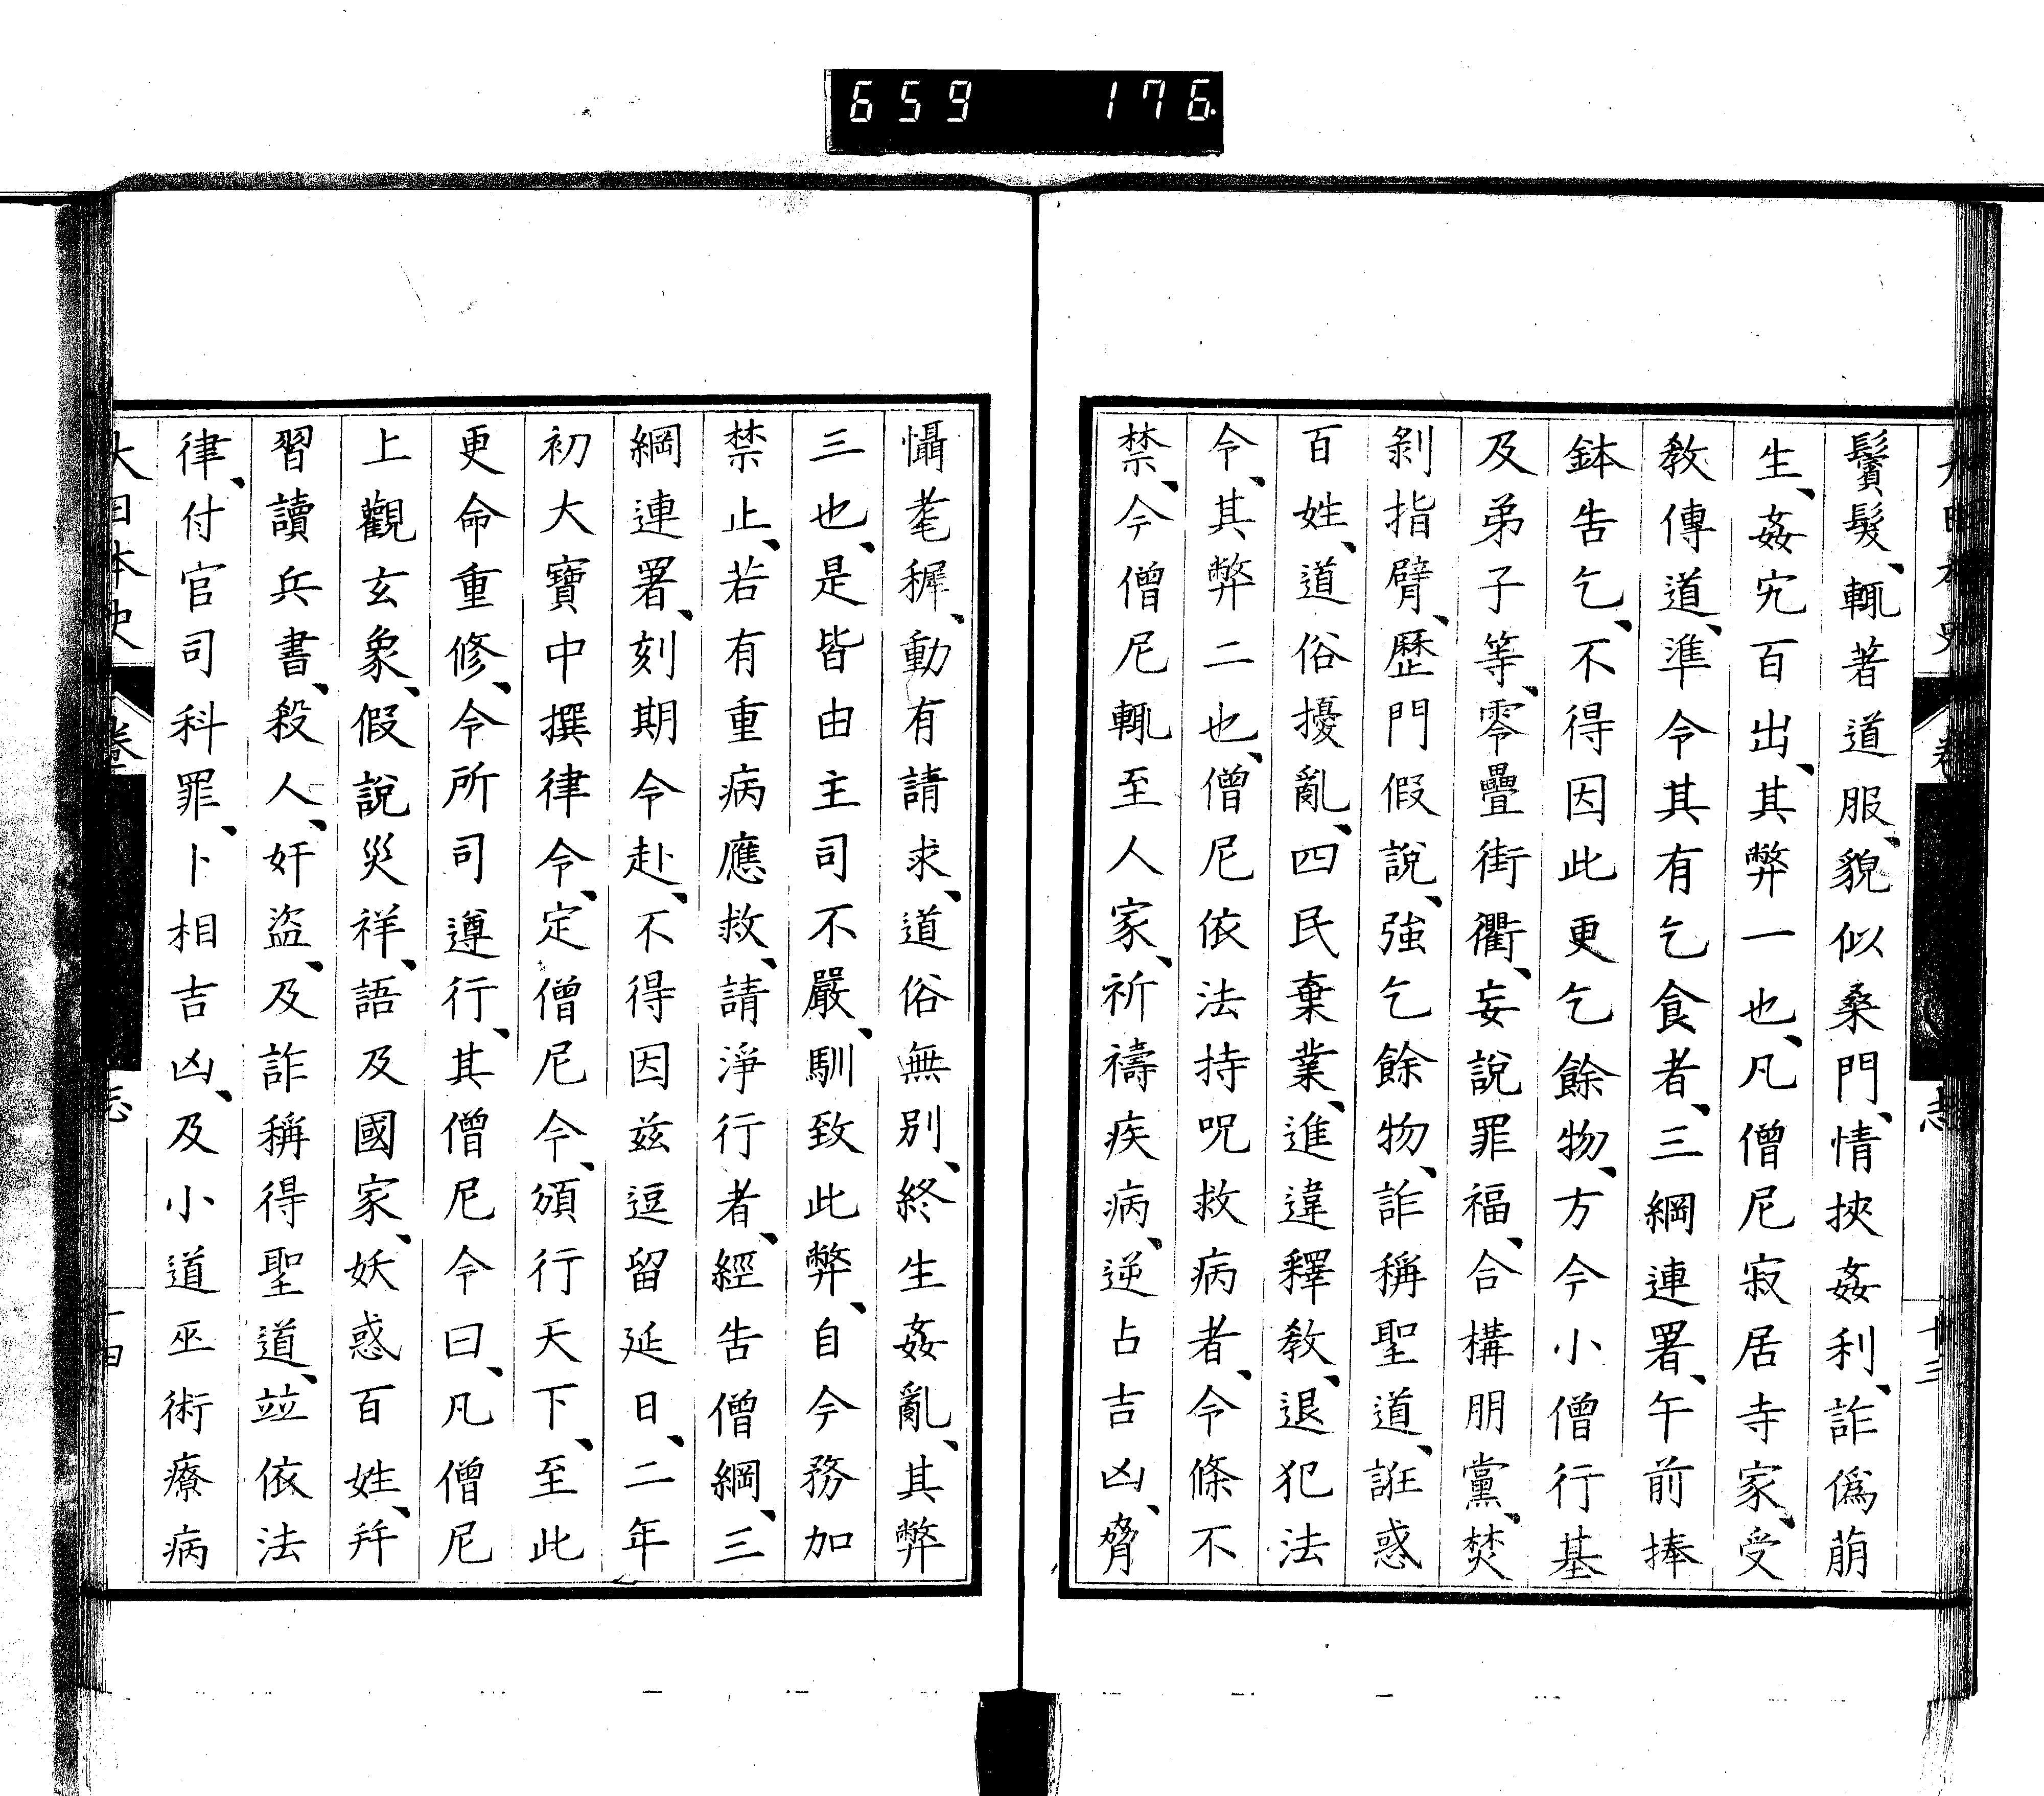 659 176
鬢髮、輒著道服、貌似桑門、情挾姦利、詐僞萠
生、姦宄百出、其弊一也、凡僧尼寂居寺家、受
教傳道、準令其有乞食者、三綱連署、午前捧
鉢告乞、不得因此更乞餘物、方今小僧行基
及弟子等、零疊街衢、妄說罪福、合構朋黨、焚
剝指臂、歷門假說、強乞餘物、詐稱聖道、誑惑
百姓、道俗擾亂、四民棄業、進違釋教、退犯法
令、其弊二也、僧尼依法持呪救病者、令條不
禁、今僧尼輒至人家、祈禱疾病、逆占吉凶、脅
懾耄穉、動有請求、道俗無別、終生姦亂、其弊
三也、是皆由主司不嚴、馴致此弊、自今務加
禁止、若有重病應救、請淨行者、經告僧綱、三
綱連署、刻期令赴、不得因茲逗留延日、二年
初大寶中撰律令、定僧尼令、頒行天下、至此
更命重修、令所司遵行、其僧尼令曰、凡僧尼
上觀玄象、假說災祥、語及國家、妖惑百姓、幷
習讀兵書、殺人、奸盜、及詐稱得聖道、竝依法
律、付官司科罪、卜相吉凶、及小道巫術療病
大日本史 卷 志